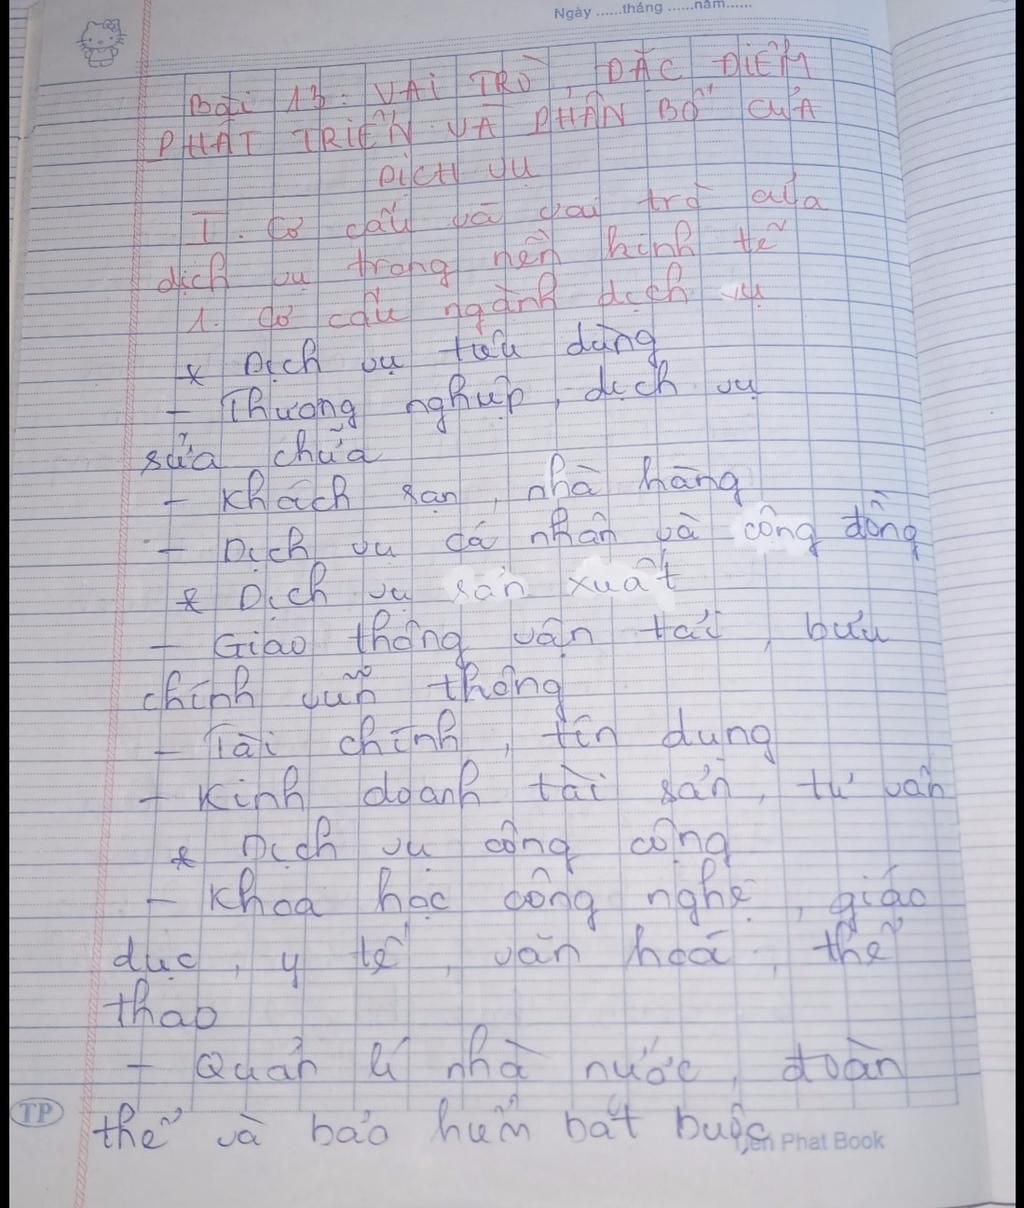 Ngày ......tháng ......năm......
Bài 13: VAI TRÒ, ĐẶC ĐIỂM
PHÁT TRIỂN VÀ PHÂN BỐ CỦA
DỊCH VỤ
I. Cơ cấu và vai trò của
dịch vụ trong nền kinh tế
1. Cơ cấu ngành dịch vụ
* Dịch vụ tiêu dùng
- Thương nghiệp, dịch vụ
sửa chữa
- Khách sạn, nhà hàng
- Dịch vụ cá nhân và công đồng
* Dịch vụ sản xuất
- Giao thông vận tải, bưu
chính viễn thông
- Tài chính, tín dụng
- Kinh doanh tài sản, tư vấn
* Dịch vụ công cộng
- Khoa học công nghệ, giáo
dục, y tế, văn hoá, thể
thao
- Quản lí nhà nước, đoàn
thể và bảo hiểm bắt buộc
TP
Phat Book